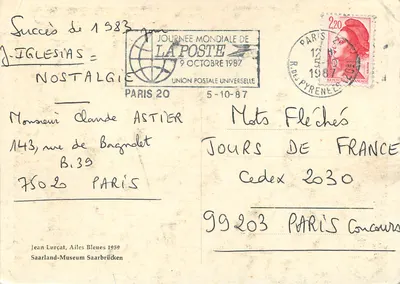 Succès de 1983 pour
J. IGLESIAS =
NOSTALGIE
Monsieur Claude ASTIER
143, rue de Bagnolet
B.39
75020 PARIS
Jean Lurçat, Ailes Bleues 1939
Saarland-Museum Saarbrücken
JOURNEE MONDIALE DE
LA POSTE
9 OCTOBRE 1987
UNION POSTALE UNIVERSELLE
PARIS 20 5-10-87
2,20
PARIS
1987
R. des PYRENEES
Mots Fléchés
JOURS DE FRANCE
Cedex 2030
99203 PARIS Concours